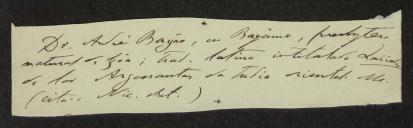 Dr. André Bayão, ou Bayamo, presbytero
natural de Gôa; trad. latina intitulada Lusiada
de los Argonautas da India oriental. Ms.
(cita o Nic. Ant.)